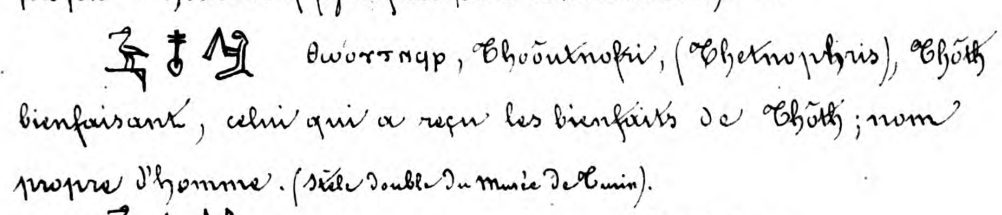 𓅝𓄤𓀀 ⲑⲱⲟⲩⲧⲛϥⲣ, Thôoutnofri, (Thetnophris), Thôth
bienfaisant, celui qui a reçu les bienfaits de Thôth; nom
propre d'homme. (Stèle double du Musée de Turin).